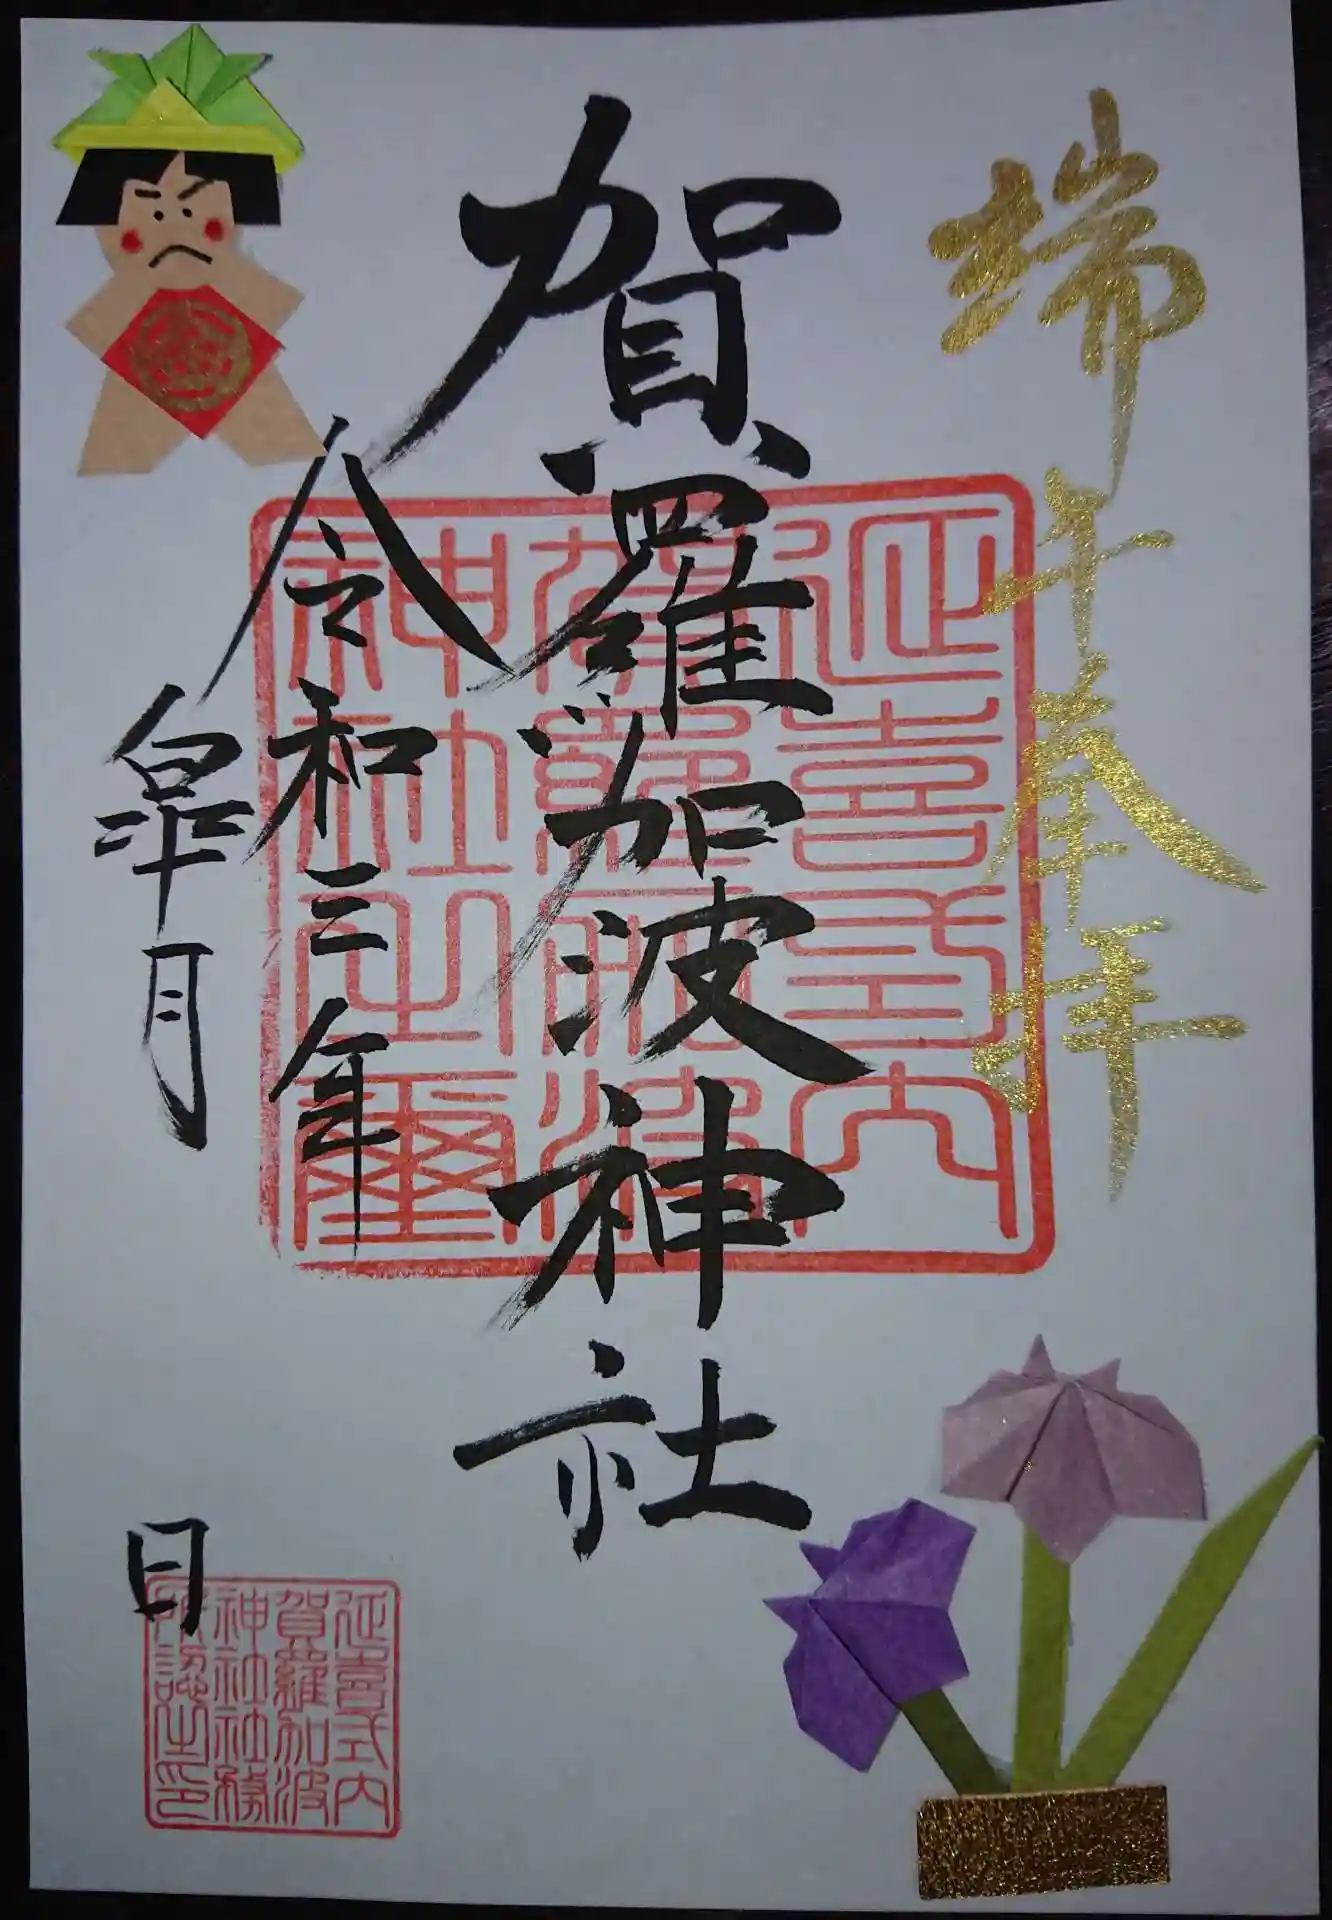 端午奉拝
賀羅加波神社
令和三年
皐月 日
延喜式内
賀羅加波
神社之璽
延喜式内
賀羅加波
神社社務
所認之印